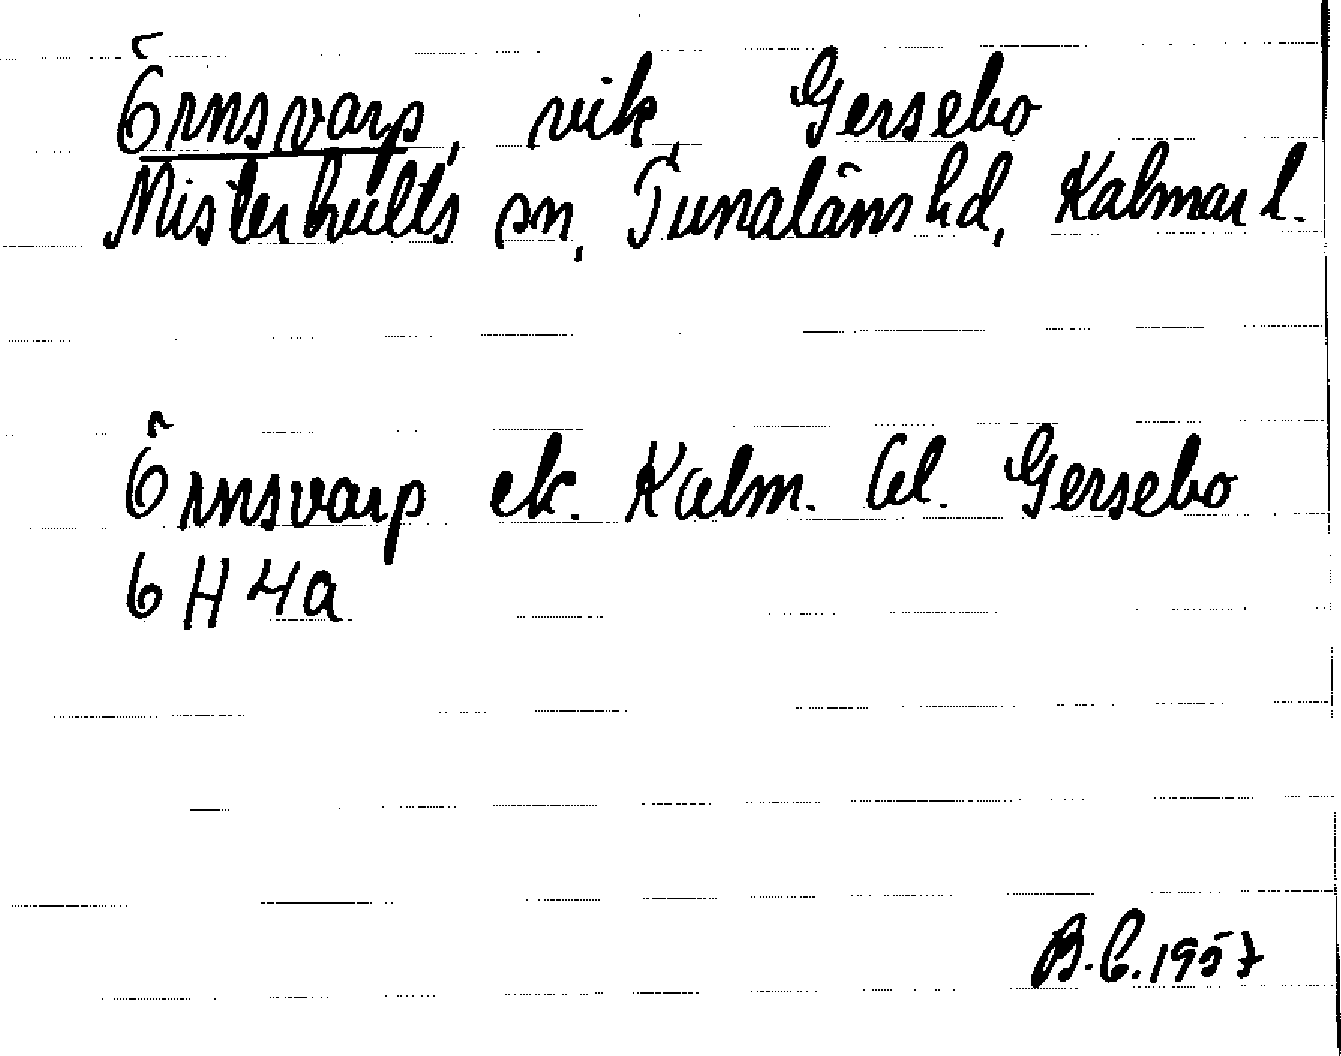 Örnsvarp, vik, Gersebo
Misterhults sn, Tunaläns hd, Kalmar l.
Örnsvarp ek. Kalm. Gersebo
6 H 4a
B.C. 1957